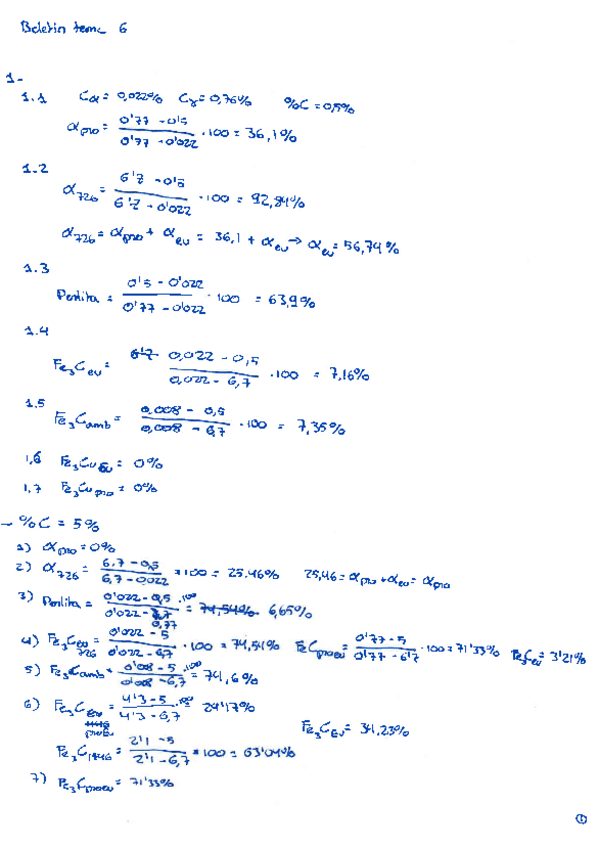 Boletín tema 6
1-
1.1 Cα = 0,022% Cγ = 0,76% %C = 0,5%
αpro = 0'77 - 0'5 / 0'77 - 0'022 · 100 = 36,1%
1.2
α726 = 6'7 - 0'5 / 6'7 - 0'022 · 100 = 92,84%
α726 = αpro + αeu = 36,1 + αeu → αeu = 56,74%
1.3
Perlita = 0'5 - 0'022 / 0'77 - 0'022 · 100 = 63,9%
1.4
Fe3Ceu = 6'7 0,022 - 0,5 / 0,022 - 6,7 · 100 = 7,16%
1.5
Fe3Camb = 0,008 - 0,5 / 0,008 - 6,7 · 100 = 7,35%
1,6 Fe3CuEu = 0%
1,7 Fe3Cupro = 0%
- %C = 5%
1) αpro = 0%
2) α726 = 6,7 - 0,5 / 6,7 - 0,022 · 100 = 25.46% 25,46 = αpro + αeu = αpro
3) Perlita = 0'022 - 0,5 / 0'022 - 0,77 · 100 = 74,54% 6,65%
4) Fe3Ceu 726 = 0'022 - 5 / 0'022 - 6,7 · 100 = 74,54% FeCproeu = 0'77 - 5 / 0'77 - 6'7 · 100 = 71'33% Fe3Ceu = 3'21%
5) Fe3Camb = 0'08 - 5 / 0'08 - 6,7 · 100 = 74,6%
6) Fe3C = 4'3 - 5 / 4'3 - 6,7 · 100 = 29'17%
Fe3CEu = 34,23%
Fe3C1146 = 2'1 - 5 / 2'1 - 6,7 · 100 = 63'04%
7) Fe3Cproeu = 71'33%
1